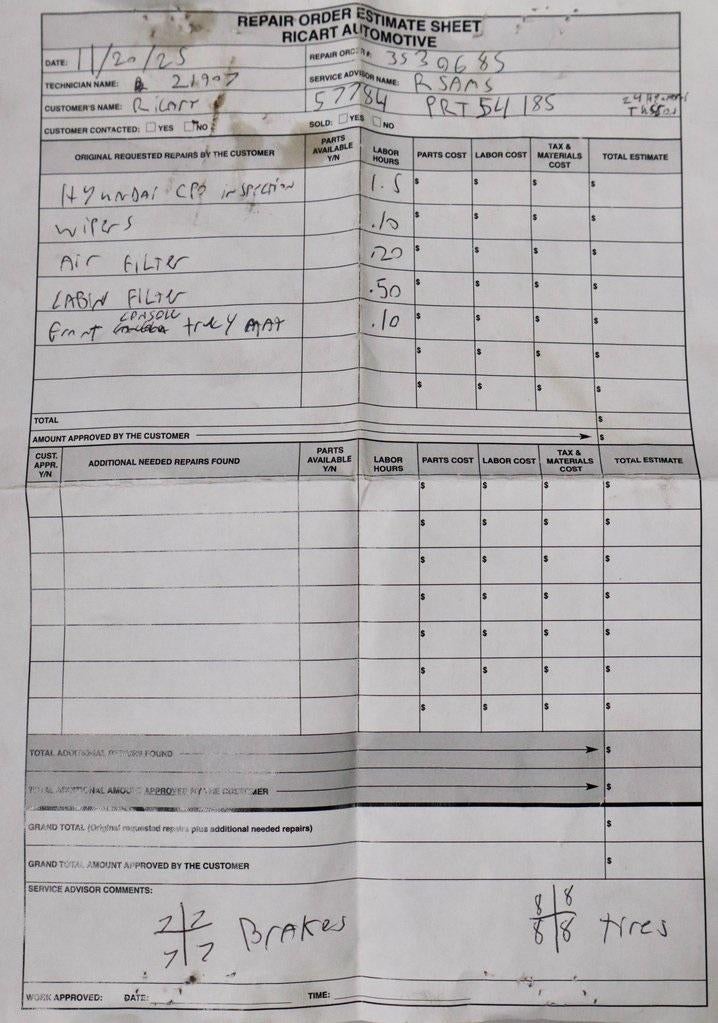 REPAIR ORDER ESTIMATE SHEET
RICART AUTOMOTIVE
DATE: 11/20/25 REPAIR ORDER#: 3530685
TECHNICIAN NAME: 21907 SERVICE ADVISOR NAME: R SAMS
CUSTOMER'S NAME: Ricart 57784 PRT 54185
CUSTOMER CONTACTED: YES NO SOLD: YES NO
ORIGINAL REQUESTED REPAIRS BY THE CUSTOMER PARTS AVAILABLE Y/N LABOR HOURS PARTS COST LABOR COST TAX & MATERIALS COST TOTAL ESTIMATE
HYUNDAI CPO inspection 1.5 $ $ $ $
wipers .10 $ $ $ $
Air FILTER .20 $ $ $ $
CABIN FILTER .50 $ $ $ $
Front CONSOLE MAT .10 $ $ $ $
$ $ $ $
$ $ $ $
TOTAL $
AMOUNT APPROVED BY THE CUSTOMER $
CUST. APPR. Y/N ADDITIONAL NEEDED REPAIRS FOUND PARTS AVAILABLE Y/N LABOR HOURS PARTS COST LABOR COST TAX & MATERIALS COST TOTAL ESTIMATE
$ $ $ $
$ $ $ $
$ $ $ $
$ $ $ $
$ $ $ $
$ $ $ $
$ $ $ $
TOTAL ADDITIONAL REPAIRS FOUND $
TOTAL ADDITIONAL AMOUNT APPROVED BY THE CUSTOMER $
GRAND TOTAL (Original requested repairs plus additional needed repairs) $
GRAND TOTAL AMOUNT APPROVED BY THE CUSTOMER $
SERVICE ADVISOR COMMENTS:
7 7 8 8
7 7 Brakes 8 8 tires
WORK APPROVED: DATE: TIME: